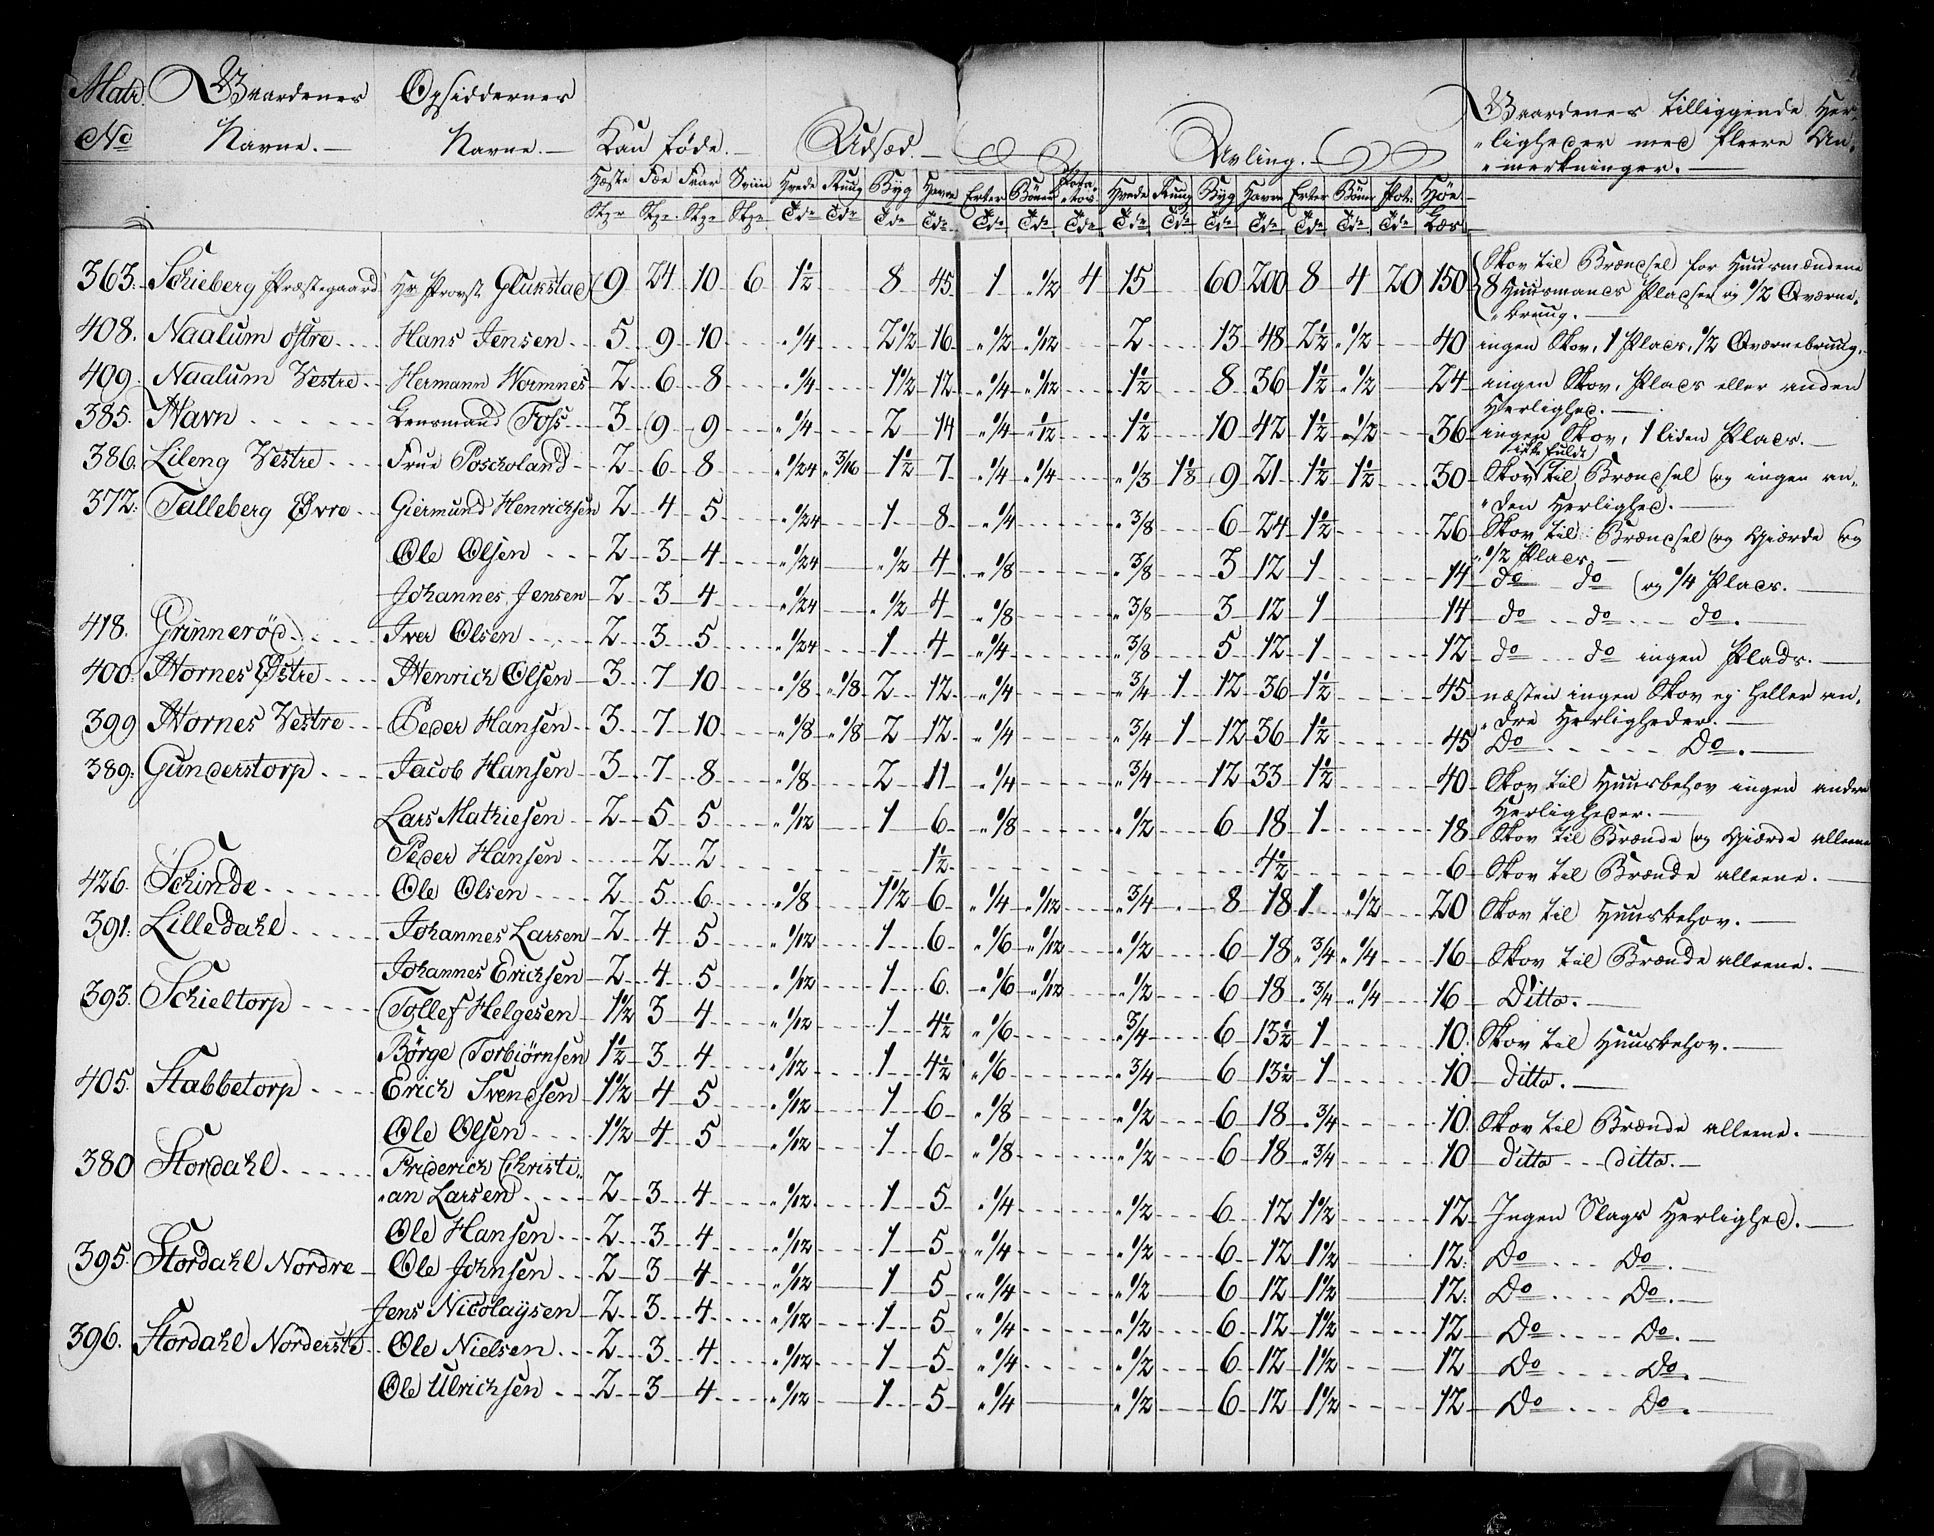 Matr. No | Gaardenes Navne. | Opsiddernes Navne. | Kan føde. | Udsæd. | Avling. | Gaardenes tilliggende Her-
ligheder med fleere An-
merkninger.
Hæste | Fæe | Faar | Sviin | Hvede | Rug | Byg | Havre | Erter | Bönner | Potatos | Hvede | Rug | Byg | Havre | Erter | Bönner | Pot: | Høe
Stkr | Stkr | Stkr | Stkr | Tdr | Tdr | Tdr | Tdr | Tdr | Tdr | Tdr | Tdr | Tdr | Tdr | Tdr | Tdr | Tdr | Tdr | Læs
363. Schieberg Præstegaard Hr Provst Glukstad 9 24 10 6 1 1/2 8 45 1 1/2 4 15 60 200 8 4 20 150 Skov til Brændsel for Huusmændene
8 Huusmands Pladser og 1/2 Qværne-
bruug.
408. Naalum østre Hans Jensen 5 9 10 1/4 2 1/2 16 1/2 1/12 2 13 48 2 1/2 1/2 40 ingen Skov, 1 Plads, 1/2 Qværnebruug.
409. Naalum Vestre Hermann Wormnes 2 6 8 1/4 1 1/2 12 1/4 1/12 1 1/2 8 36 1 1/2 1/2 24 ingen Skov, Plads eller anden
Herlighed.
385. Navn Lensmand Foss 3 9 9 1/4 2 14 1/4 1/12 1 1/2 10 42 1 1/2 1/2 36 ingen Skov, 1 liden Plads.
386. Lileng Vestre Frue Poscholand 2 6 8 1/24 3/16 1 1/2 7 1/4 1/4 1/3 1 1/8 9 21 1 1/2 1 1/2 30 Skov ikke fuldt til Brændsel og ingen an-
den Herlighed.
372. Talleberg Øvre Giermund Henrichsen 2 4 5 1/24 1 8 1/4 3/8 6 24 1 1/2 26 Skov til Brændsel og Giærde og
1/2 Plads
Ole Olsen 2 3 4 1/24 1/2 4 1/8 3/8 3 12 1 14 do do og 1/4 Plads.
Johannes Jensen 2 3 4 1/24 1/2 4 1/8 3/8 3 12 1 14 do do do.
418. Grinnerød Iver Olsen 2 3 5 1/24 1 4 1/4 3/8 5 12 1 12 do do ingen Plads.
400. Hornes Østre Henrich Olsen 3 7 10 1/8 1/8 2 12 1/4 3/4 1 12 36 1 1/2 45 næsten ingen Skov ej heller an-
dre Herligheder.
399 Hornes Vestre Peder Hansen 3 7 10 1/8 1/8 2 12 1/4 3/4 1 12 36 1 1/2 45 Do Do.
389. Gunderstorp Jacob Hansen 3 7 8 1/8 2 11 1/4 3/4 12 33 1 1/2 40 Skov til Huusbehov ingen andre
Herligheder.
Lars Mathiesen 2 5 5 1/12 1 6 1/8 1/2 6 18 1 18 Skov til Brænde og Giærde alleene
Peder Hansen 2 2 1 1/2 4 1/2 6 Skov til Brænde alleene.
426. Schinde Ole Olsen 2 5 6 1/8 1 1/2 6 1/4 1/12 3/4 8 18 1 1/2 20 Skov til Huusbehov.
391. Lilledahl Johannes Larsen 2 4 5 1/12 1 6 1/6 1/12 1/2 6 18 3/4 1/4 16 Skov til Brænde alleene.
Johannes Erichsen 2 4 5 1/12 1 6 1/6 1/12 1/2 6 18 3/4 1/4 16 Ditto.
393. Schieltorp Tollef Helgesen 1 1/2 3 4 1/12 1 4 1/2 1/6 3/4 6 13 1/2 1 10. Skov til Huusbehov.
Børge Torbiørnsen 1 1/2 3 4 1/12 1 4 1/2 1/6 3/4 6 13 1/2 1 10 ditto.
405. Stabbetorp Erich Svendsen 1 1/2 4 5 1/12 1 6 1/8 1/2 6 18 3/4 10. Skov til Brænde alleene.
Ole Olsen 1 1/2 4 5 1/12 1 6 1/8 1/2 6 18 3/4 10 ditto ditto.
380 Stordahl Friderich Christi-
an Larsen 2 3 4 1/12 1 5 1/4 1/2 6 12 1 1/2 12 Ingen Slags Herlighed.
Ole Hansen 2 3 4 1/12 1 5 1/4 1/2 6 12 1 1/2 12. Do Do.
395. Stordahl Nordre Ole Johnsen 2 3 4 1/12 1 5 1/4 1/2 6 12 1 1/2 12. Do Do.
Jens Nicolaysen 2 3 4 1/12 1 5 1/4 1/2 6 12 1 1/2 12 Do Do.
396. Stordahl Norderste Ole Nielsen 2 3 4 1/12 1 5 1/4 1/2 6 12 1 1/2 12 Do Do.
Ole Ulrichsen 2 3 4 1/12 1 5 1/4 1/2 6 12 1 1/2 12 Do Do.